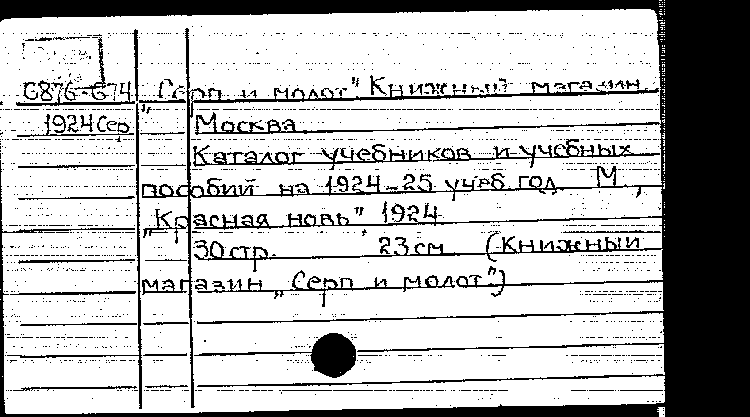 С876-674 „Серп и молот" Книжный магазин
1924 Сер Москва
Каталог учебников и учебных
пособий на 1924-25 учеб. год. М.,
„Красная новь", 1924
30 стр. 23 см (Книжный
магазин „Серп и молот".)